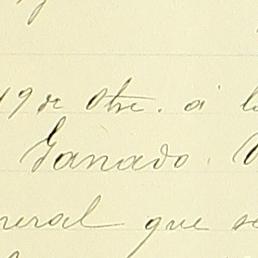 19 de Obre. á l
Ganado.
neral que se